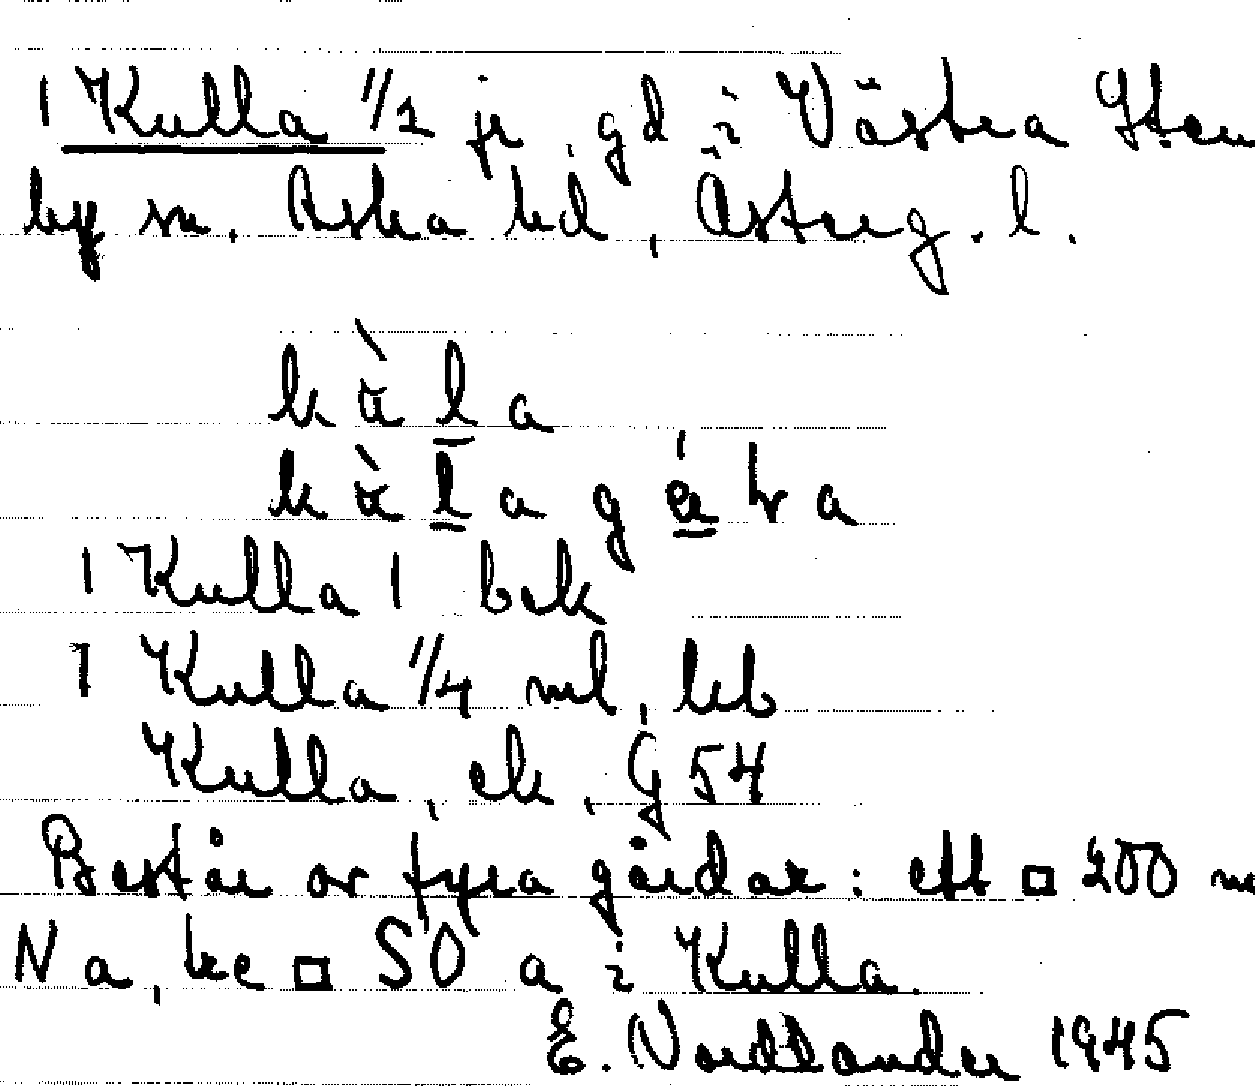 1 Kulla 1/1 jr, gd i Västra Sten
by sn. Aska hd, Österg. l.
kàl̲a
kàl̲a gá̲ɽa
1 Kulla 1 bek
1 Kulla 1/4 ml, hb
Kulla, ek, G 54
Består av fyra gårdar: ett □ 200 m
N a, tre □ SO a i Kulla.
E. Nordlander 1945